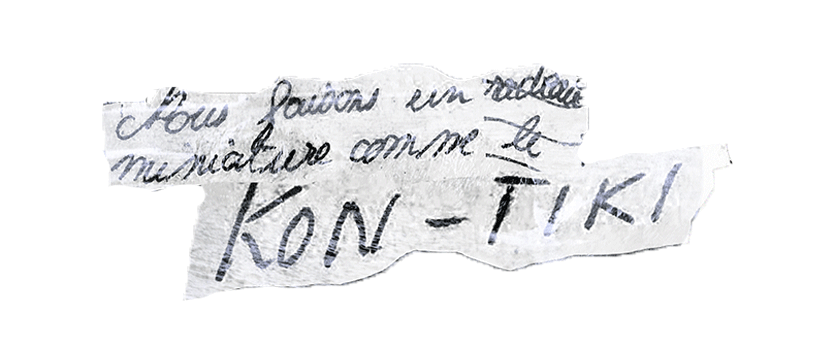 Nous faisons un radeau
miniature comme le
KON-TIKI